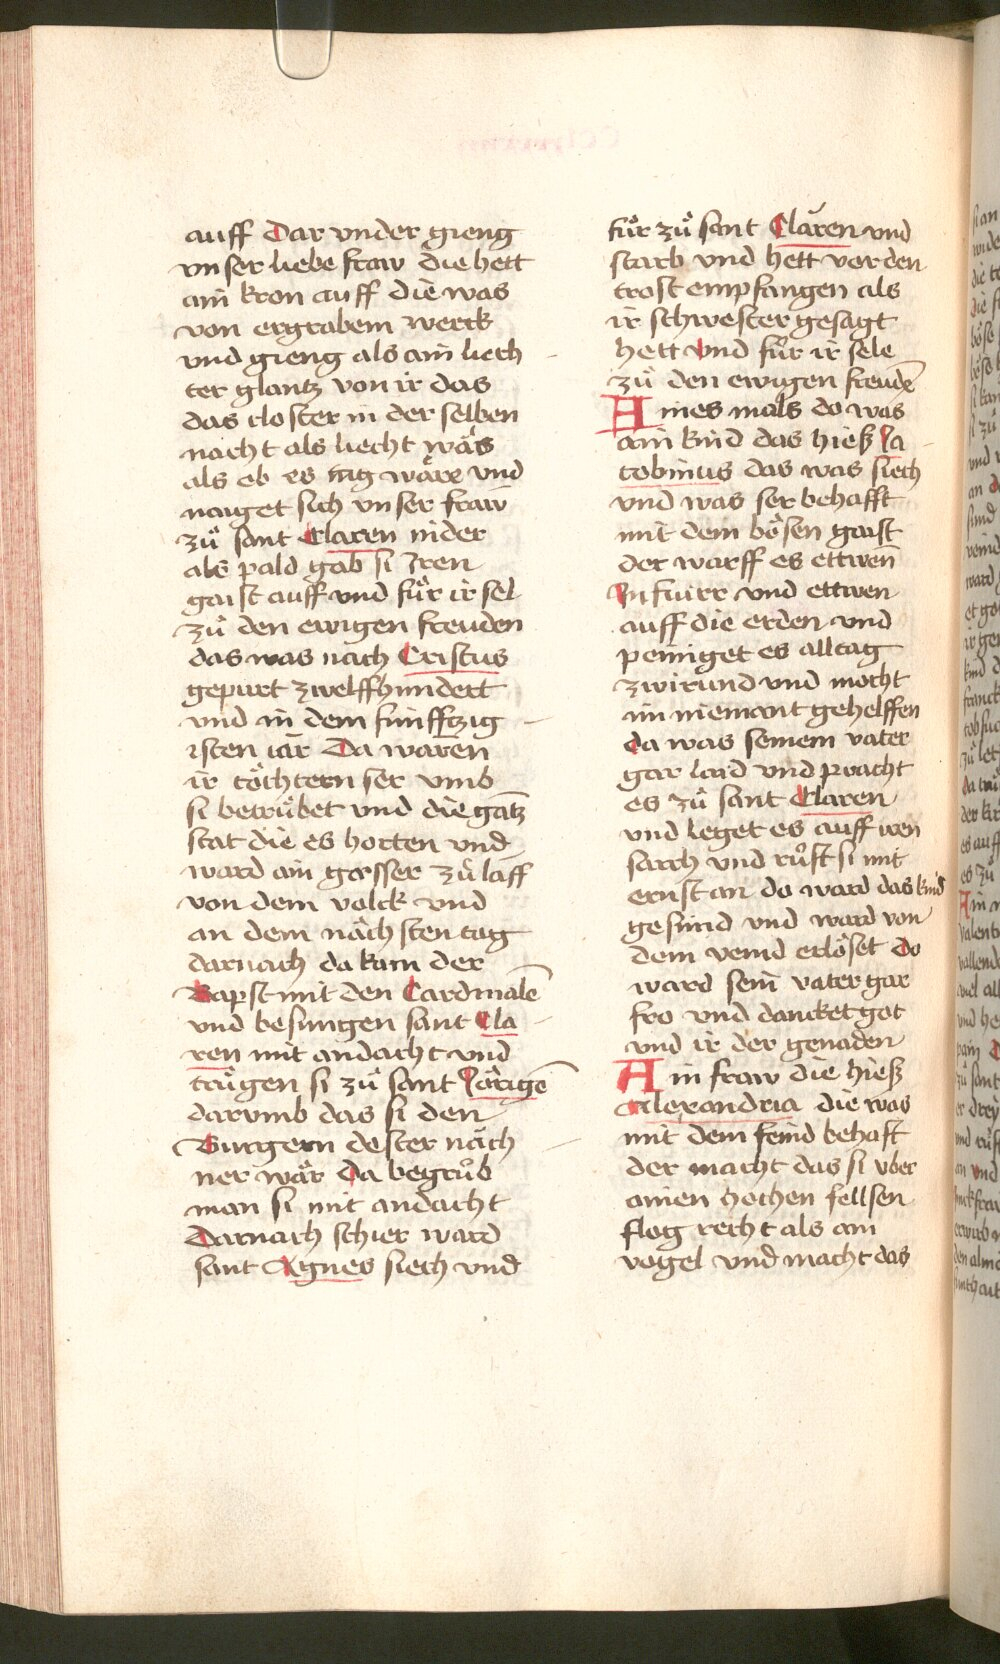 auff Dar vnder gieng
vnser liebe fraw die hett
ain kron auff die was
von ergrabem werck
vnd gieng als ain liech
ter glantz von ir das
das closter in der selben
nacht als liecht wăs
als ob es tag wăre vnd
naiget sich vnser fraw
zů sant Claren nider
als pald gab si Iren
gaist auff vnd fůr ir sel
zů den ewigen freuden
das was nach Cristus
gepurt zwelffhundert
vnd in dem funfftzig
isten iar Da waren
ir tŏchtern ser vmb
si betrůbet vnd die gātz
stat die es horten vnd
ward ain grosser zů laff
von dem volck vnd
an dem năchsten tag
darnach da kam der
Bapst mit den Cardinalē
vnd besungen sant Cla
ren mit andacht vnd
trůgen si zů sant Iŏrigē
darvmb das si den
Burgern dester năch
ner wăr Da begrůb
man si mit andacht
Darnach schier ward
sant Agnes siech vnd
fůr zů sant Claren vnd
starb vnd hett vor den
trost empfangen als
ir schwester gesagt
hett Vnd fůr ir sele
zů den ewigen freudē
Aines mals do was
ain kind das hieß Ia
cobinus das was siech
vnd was ser behafft
mit dem bŏsen gaist
der warff es ettwen
In fuirr vnd ettwen
auff die erden vnd
peiniget es alltag
zwirund vnd mocht
im niemant gehelffen
da was seinem vater
gar laid vnd pracht
es zů sant Claren
vnd leget es auff iren
sarch vnd růft si mit
ernst an do ward das kind
gesund vnd ward von
dem veind erlŏset Do
ward sein vater gar
fro vnd dancket got
vnd ir der genaden
Ain fraw die hieß
Alexandria die was
mit dem feind behaft
der macht das si vber
ainen hochen fellsen
flog recht als ain
vogel vnd macht das